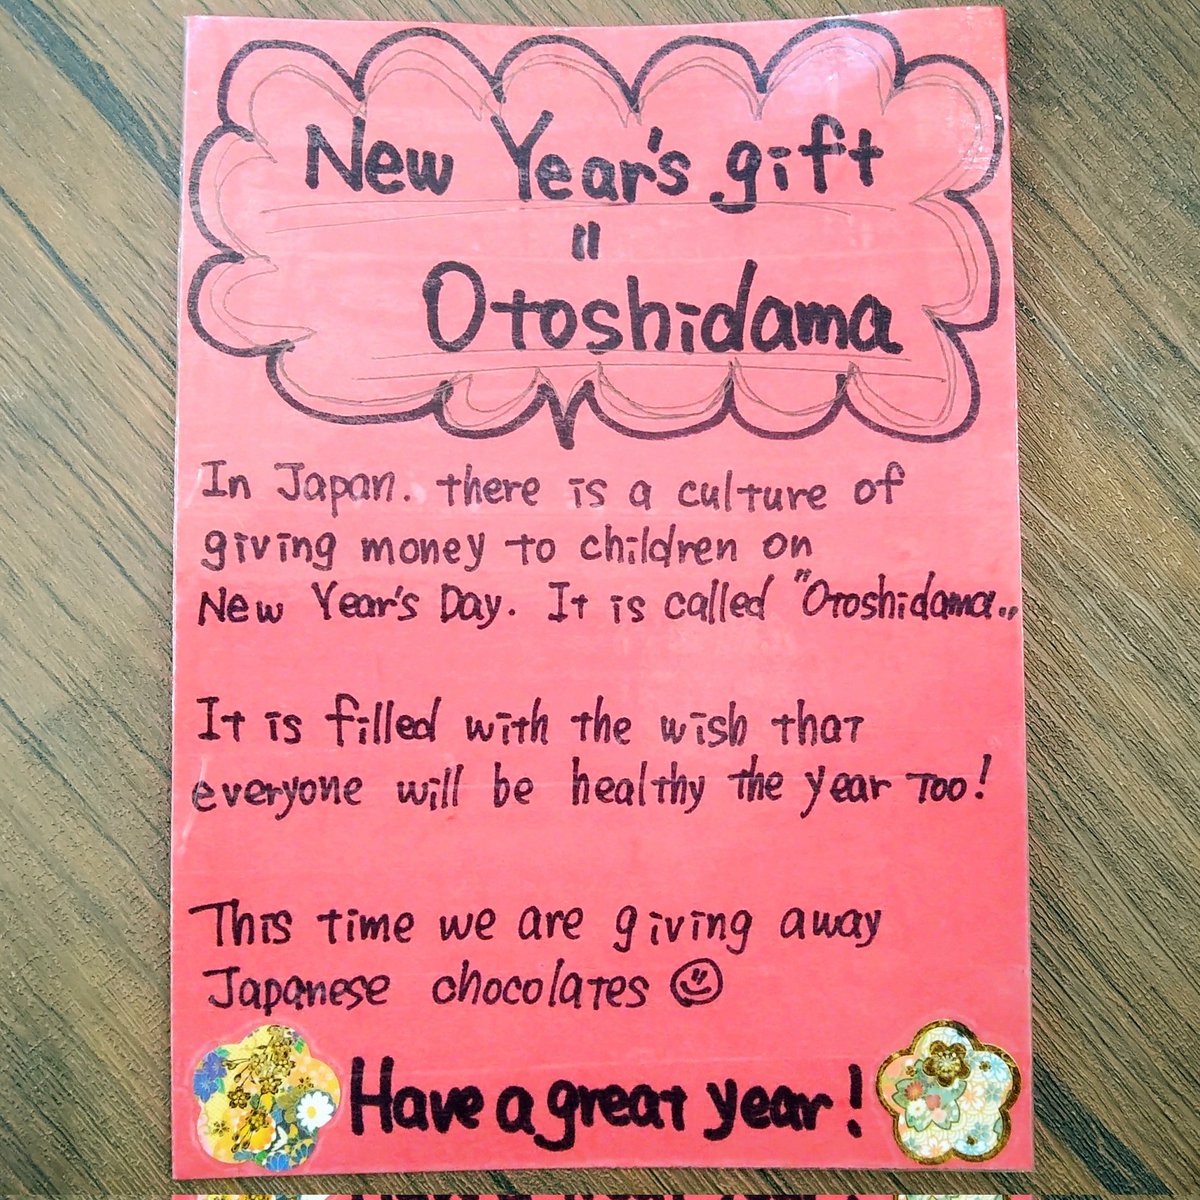 New Year's gift
"
Otoshidama
In Japan. there is a culture of
giving money to children on
New Year's Day. It is called "Otoshidama„
It is filled with the wish that
everyone will be healthy the year too!
This time we are giving away
Japanese chocolates ☺
Have a great year!